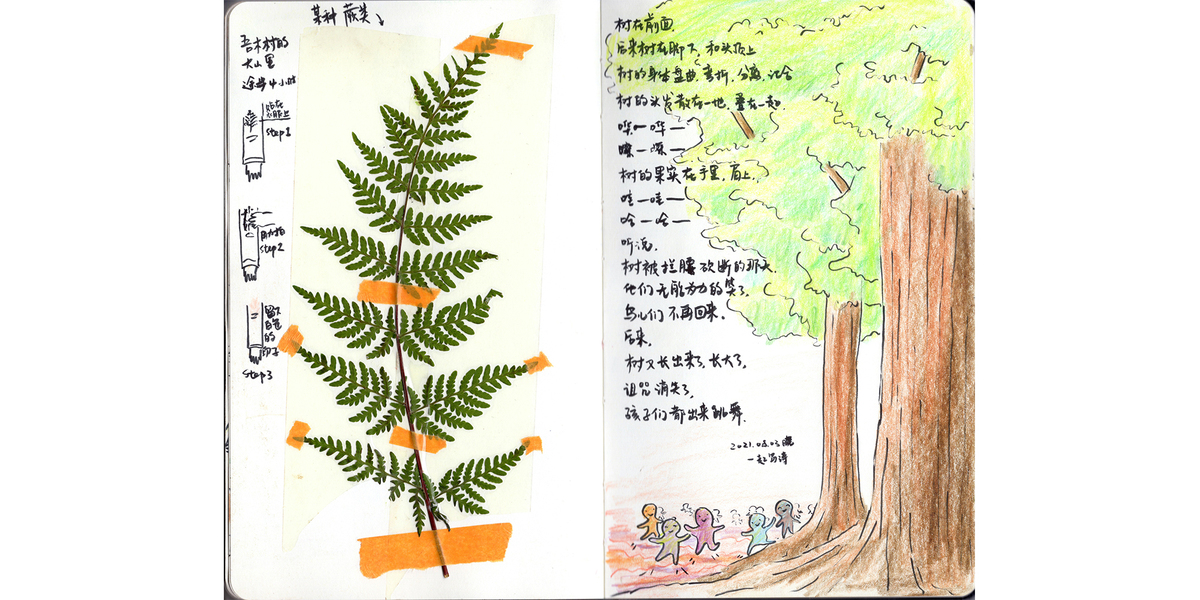 某种蕨类
吾木村的
大山里
徒步4小时
贴在
衣服上
step1
用力拍
step2
留下
白色的
印子
step3
树在前面.
后来树在脚下,和头顶上
树的身体盘曲,弯折,分离,汇合
树的头发散在一地,叠在一起.
哗—哗—
嚓—嚓—
树的果实在手里,肩上.
哇—哇—
哈—哈—
听说.
树被拦腰砍断的那天.
他们无能为力的笑了.
鸟儿们不再回来.
后来.
树又长出来了,长大了.
诅咒消失了,
孩子们都出来跳舞.
2021.03.03
一起写诗